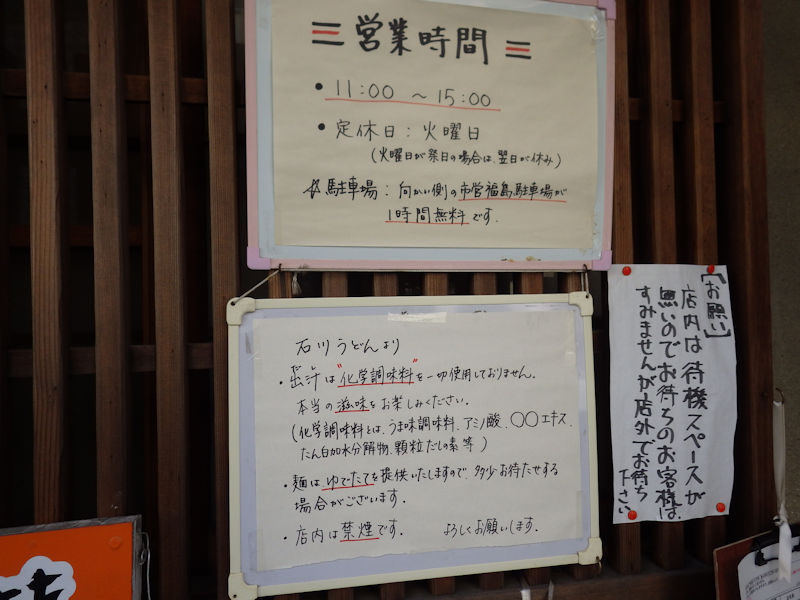 営業時間
• 11:00 ～ 15:00
• 定休日：火曜日
（火曜日が祭日の場合は、翌日が休み）
☆駐車場：向かい側の市営福島駐車場が
1時間無料です。
石川うどんより
・出汁は"化学調味料"を一切使用しておりません。
本当の滋味をお楽しみください。
（化学調味料とは、うま味調味料、アミノ酸、〇〇エキス、
たん白加水分解物、顆粒だしの素 等）
・麺は、ゆでたてを提供いたしますので、多少お待たせする
場合がございます。
・店内は禁煙です。 よろしくお願いします。
【お願い】
店内は待機スペースが
無いのでお待ちのお客様は、
すみませんが店外でお待ち
下さい